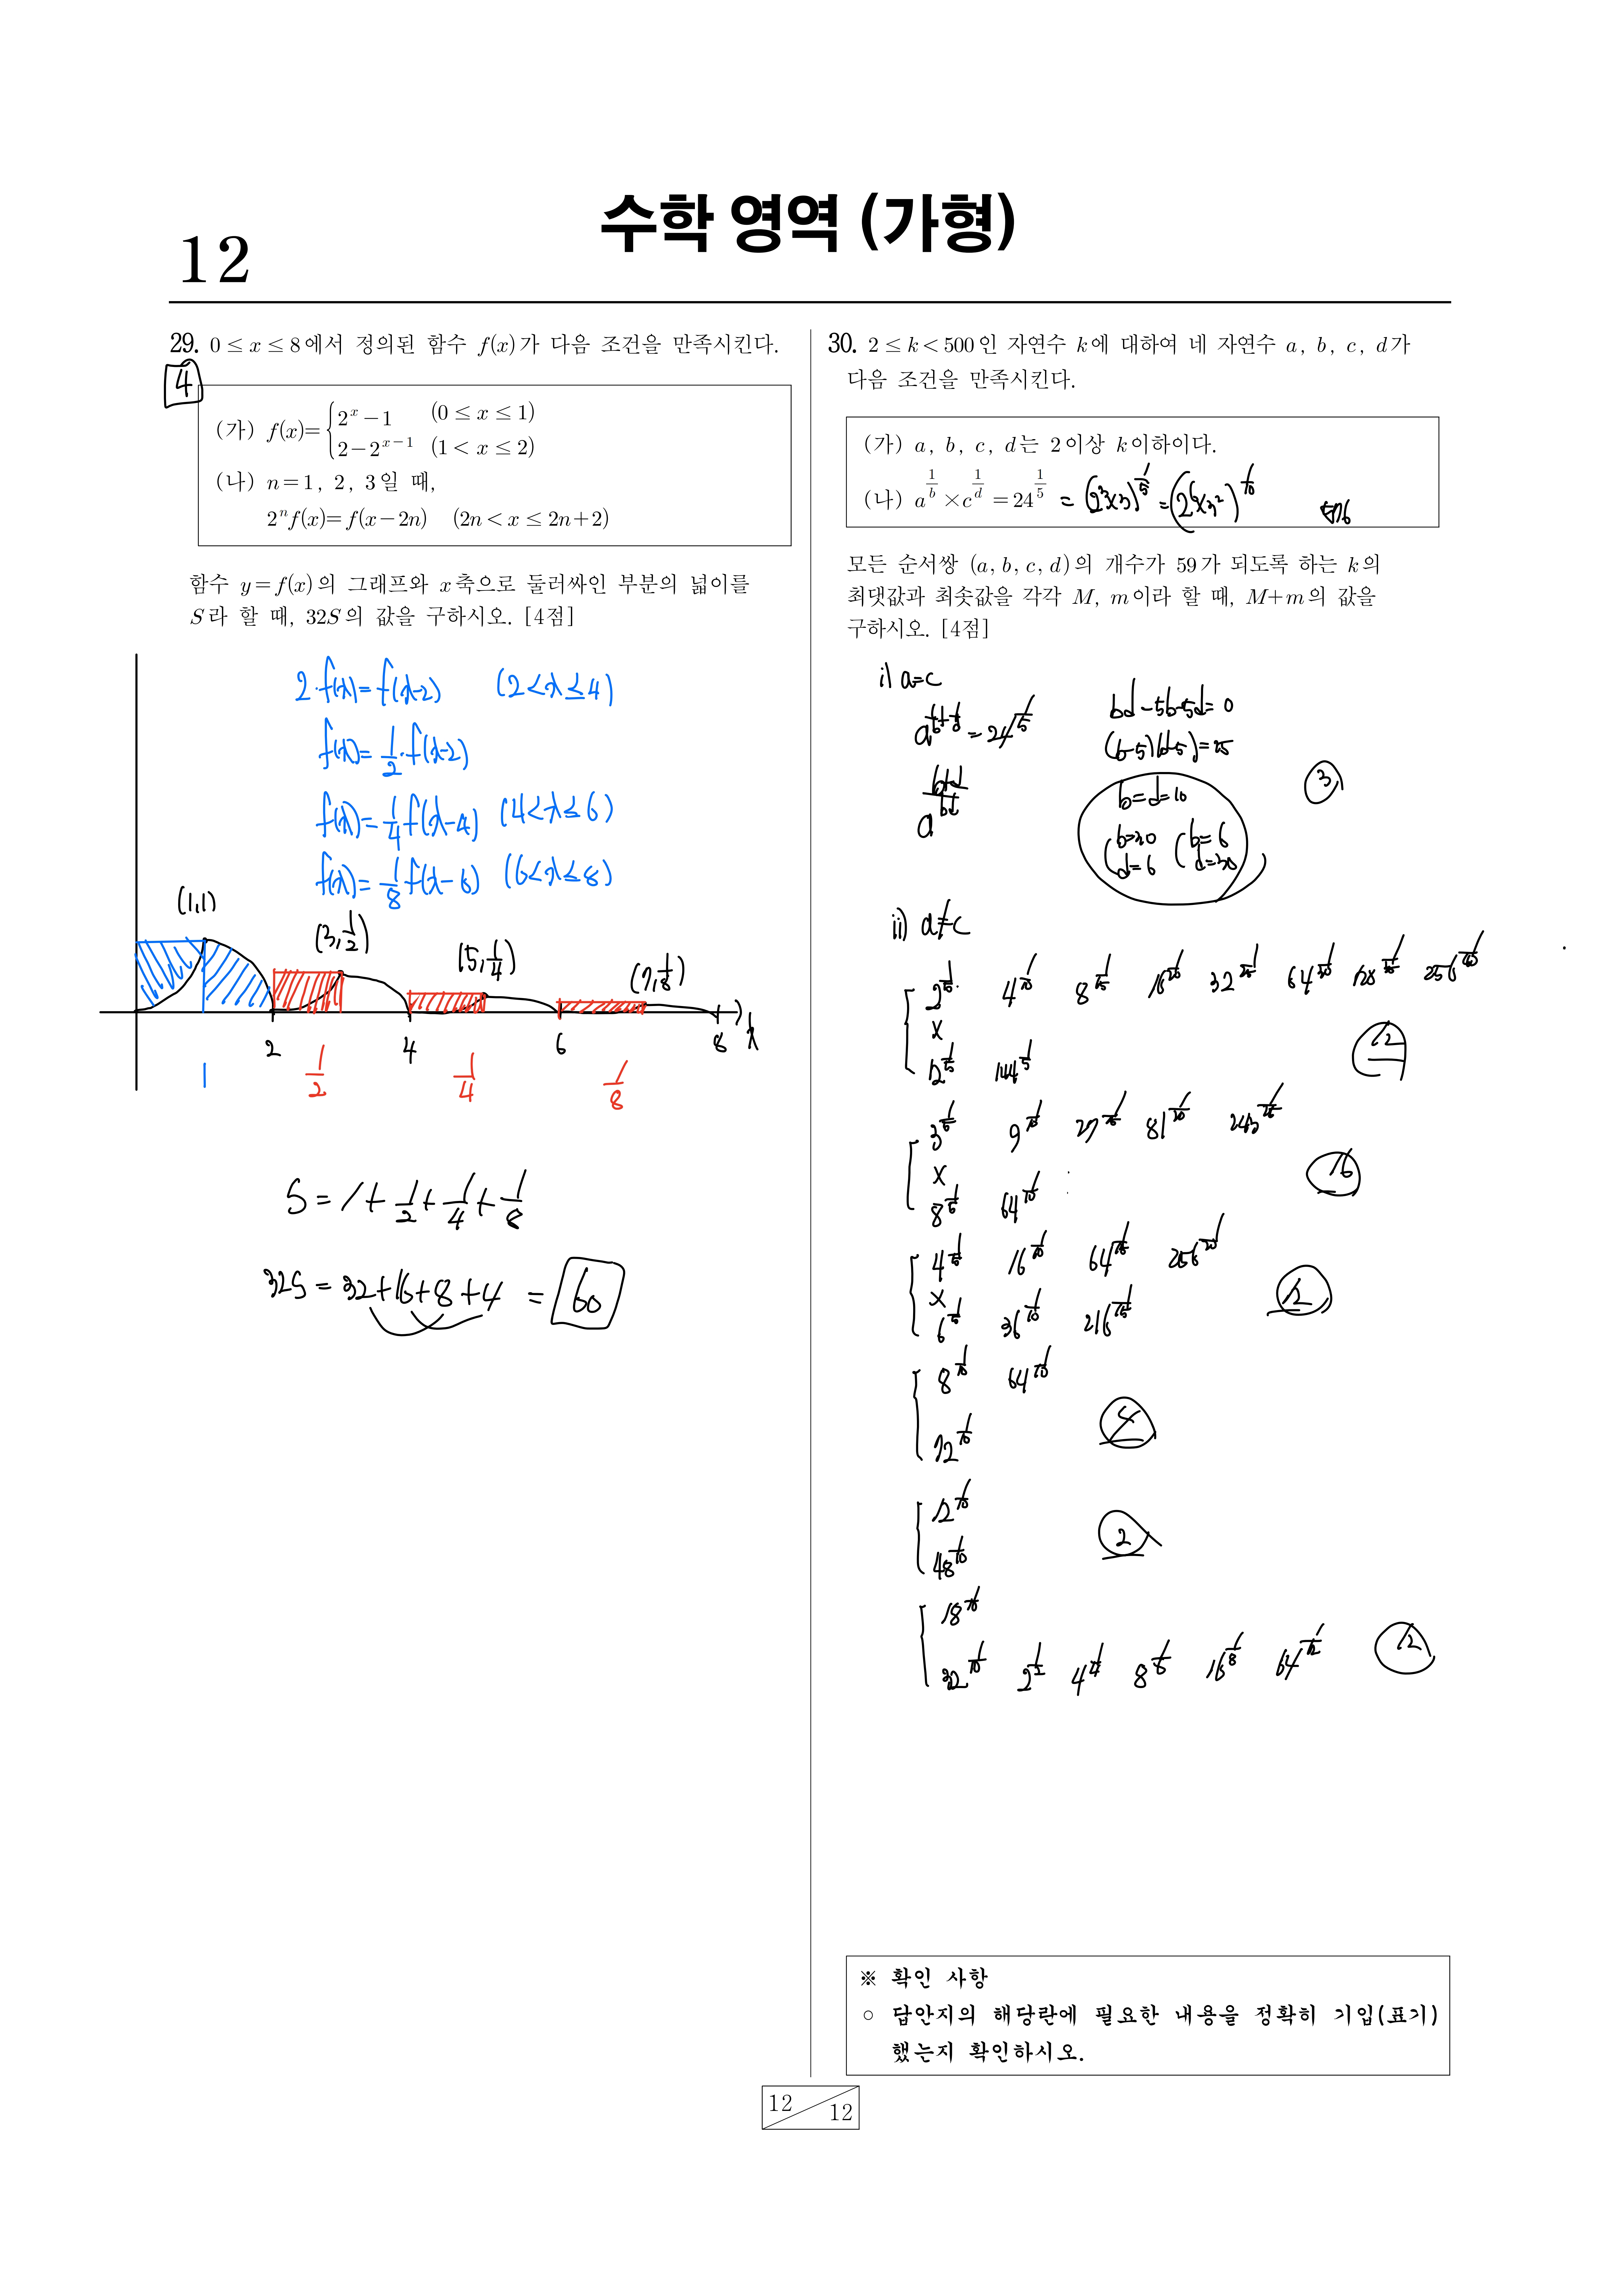 수학 영역 (가형)
12
29. 0 ≤ x ≤ 8에서 정의된 함수 f(x)가 다음 조건을 만족시킨다.
4
(가) f(x)= { 2^x − 1 (0 ≤ x ≤ 1)
2 − 2^{x−1} (1 < x ≤ 2)
(나) n = 1, 2, 3일 때,
2^n f(x) = f(x − 2n) (2n < x ≤ 2n+2)
함수 y = f(x)의 그래프와 x축으로 둘러싸인 부분의 넓이를
S라 할 때, 32S의 값을 구하시오. [4점]
2·f(x) = f(x-2) (2<x≤4)
f(x) = 1/2·f(x-2)
f(x) = 1/4 f(x-4) (4<x≤6)
f(x) = 1/8 f(x-6) (6<x≤8)
(1,1) (3,1/2) (5,1/4) (7,1/8)
2 4 6 8 x
1 1/2 1/4 1/8
S = 1 + 1/2 + 1/4 + 1/8
32S = 32+16+8+4 = 60
30. 2 ≤ k < 500인 자연수 k에 대하여 네 자연수 a, b, c, d가
다음 조건을 만족시킨다.
(가) a, b, c, d는 2이상 k이하이다.
(나) a^{1/b} × c^{1/d} = 24^{1/5} = (2^3×3)^{1/5} = (2^6×3^2)^{1/10} 576
모든 순서쌍 (a, b, c, d)의 개수가 59가 되도록 하는 k의
최댓값과 최솟값을 각각 M, m이라 할 때, M+m의 값을
구하시오. [4점]
i) a=c
a^{1/b+1/d} = 24^{1/5}
a^{(b+d)/bd}
bd-5b-5d=0
(b-5)(d-5)=25
b=d=10
(b=30 d=6 (b=6 d=30
3
ii) a≠c
2^{1/5} 4^{1/10} 8^{1/15} 16^{1/20} 32^{1/25} 64^{1/30} 128^{1/35} 256^{1/40}
×
12^{1/5} 144^{1/5}
3^{1/5} 9^{1/10} 27^{1/15} 81^{1/20} 243^{1/25}
×
8^{1/5} 64^{1/10}
16
4^{1/5} 16^{1/10} 64^{1/15} 256^{1/20}
×
6^{1/5} 36^{1/10} 216^{1/15}
12
8^{1/10} 64^{1/20}
72^{1/10}
4
12^{1/10}
48^{1/10}
2
18^{1/10}
32^{1/10} 2^{1/2} 4^{1/4} 8^{1/6} 16^{1/8} 64^{1/12}
12
※ 확인 사항
○ 답안지의 해당란에 필요한 내용을 정확히 기입(표기)
했는지 확인하시오.
12
12